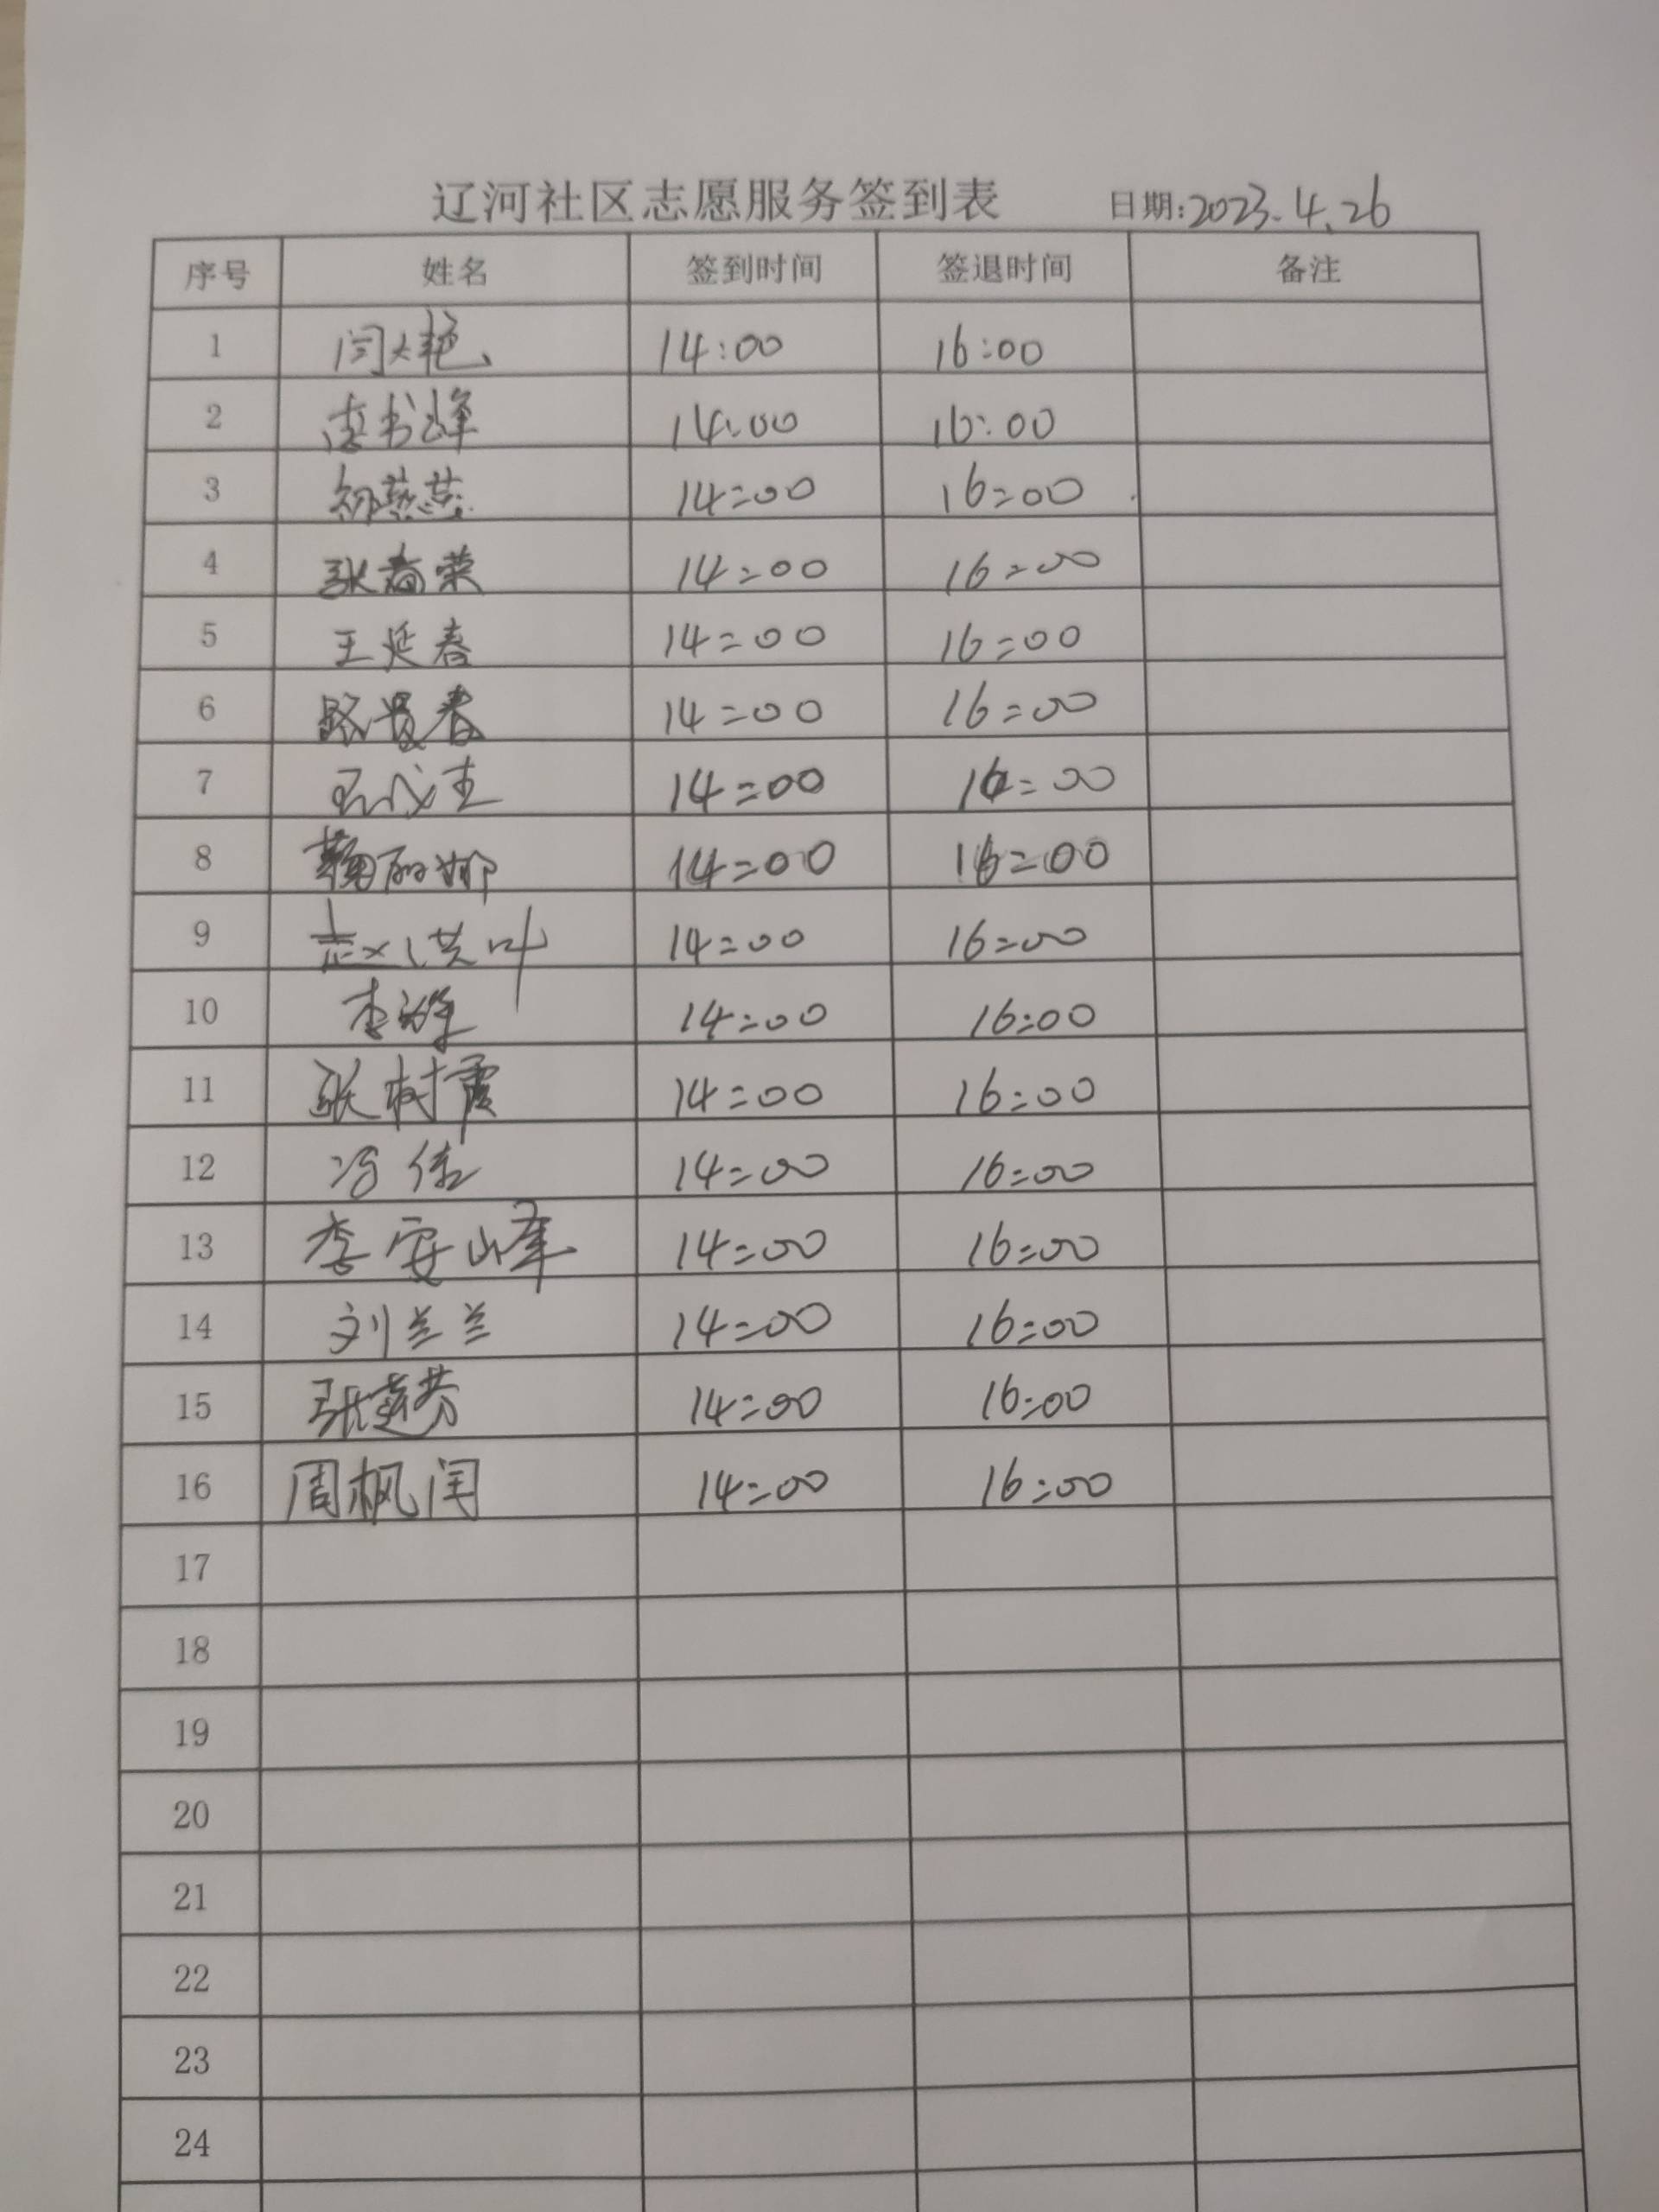 辽河社区志愿服务签到表 日期:2023.4.26
序号 姓名 签到时间 签退时间 备注
1 闫大艳 14:00 16:00
2 李书峰 14:00 16:00
3 燕燕 14:00 16:00
4 张春荣 14:00 16:00
5 王延春 14:00 16:00
6 路 春 14:00 16:00
7 14:00 16:00
8 鞠丽娜 14:00 16:00
9 赵洪叶 14:00 16:00
10 李 14:00 16:00
11 张树霞 14:00 16:00
12 冯伟 14:00 16:00
13 李安峰 14:00 16:00
14 刘兰兰 14:00 16:00
15 张莲芬 14:00 16:00
16 周枫闰 14:00 16:00
17
18
19
20
21
22
23
24